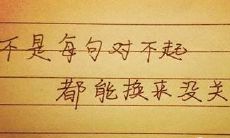 不是每句对不起
都能换来没关